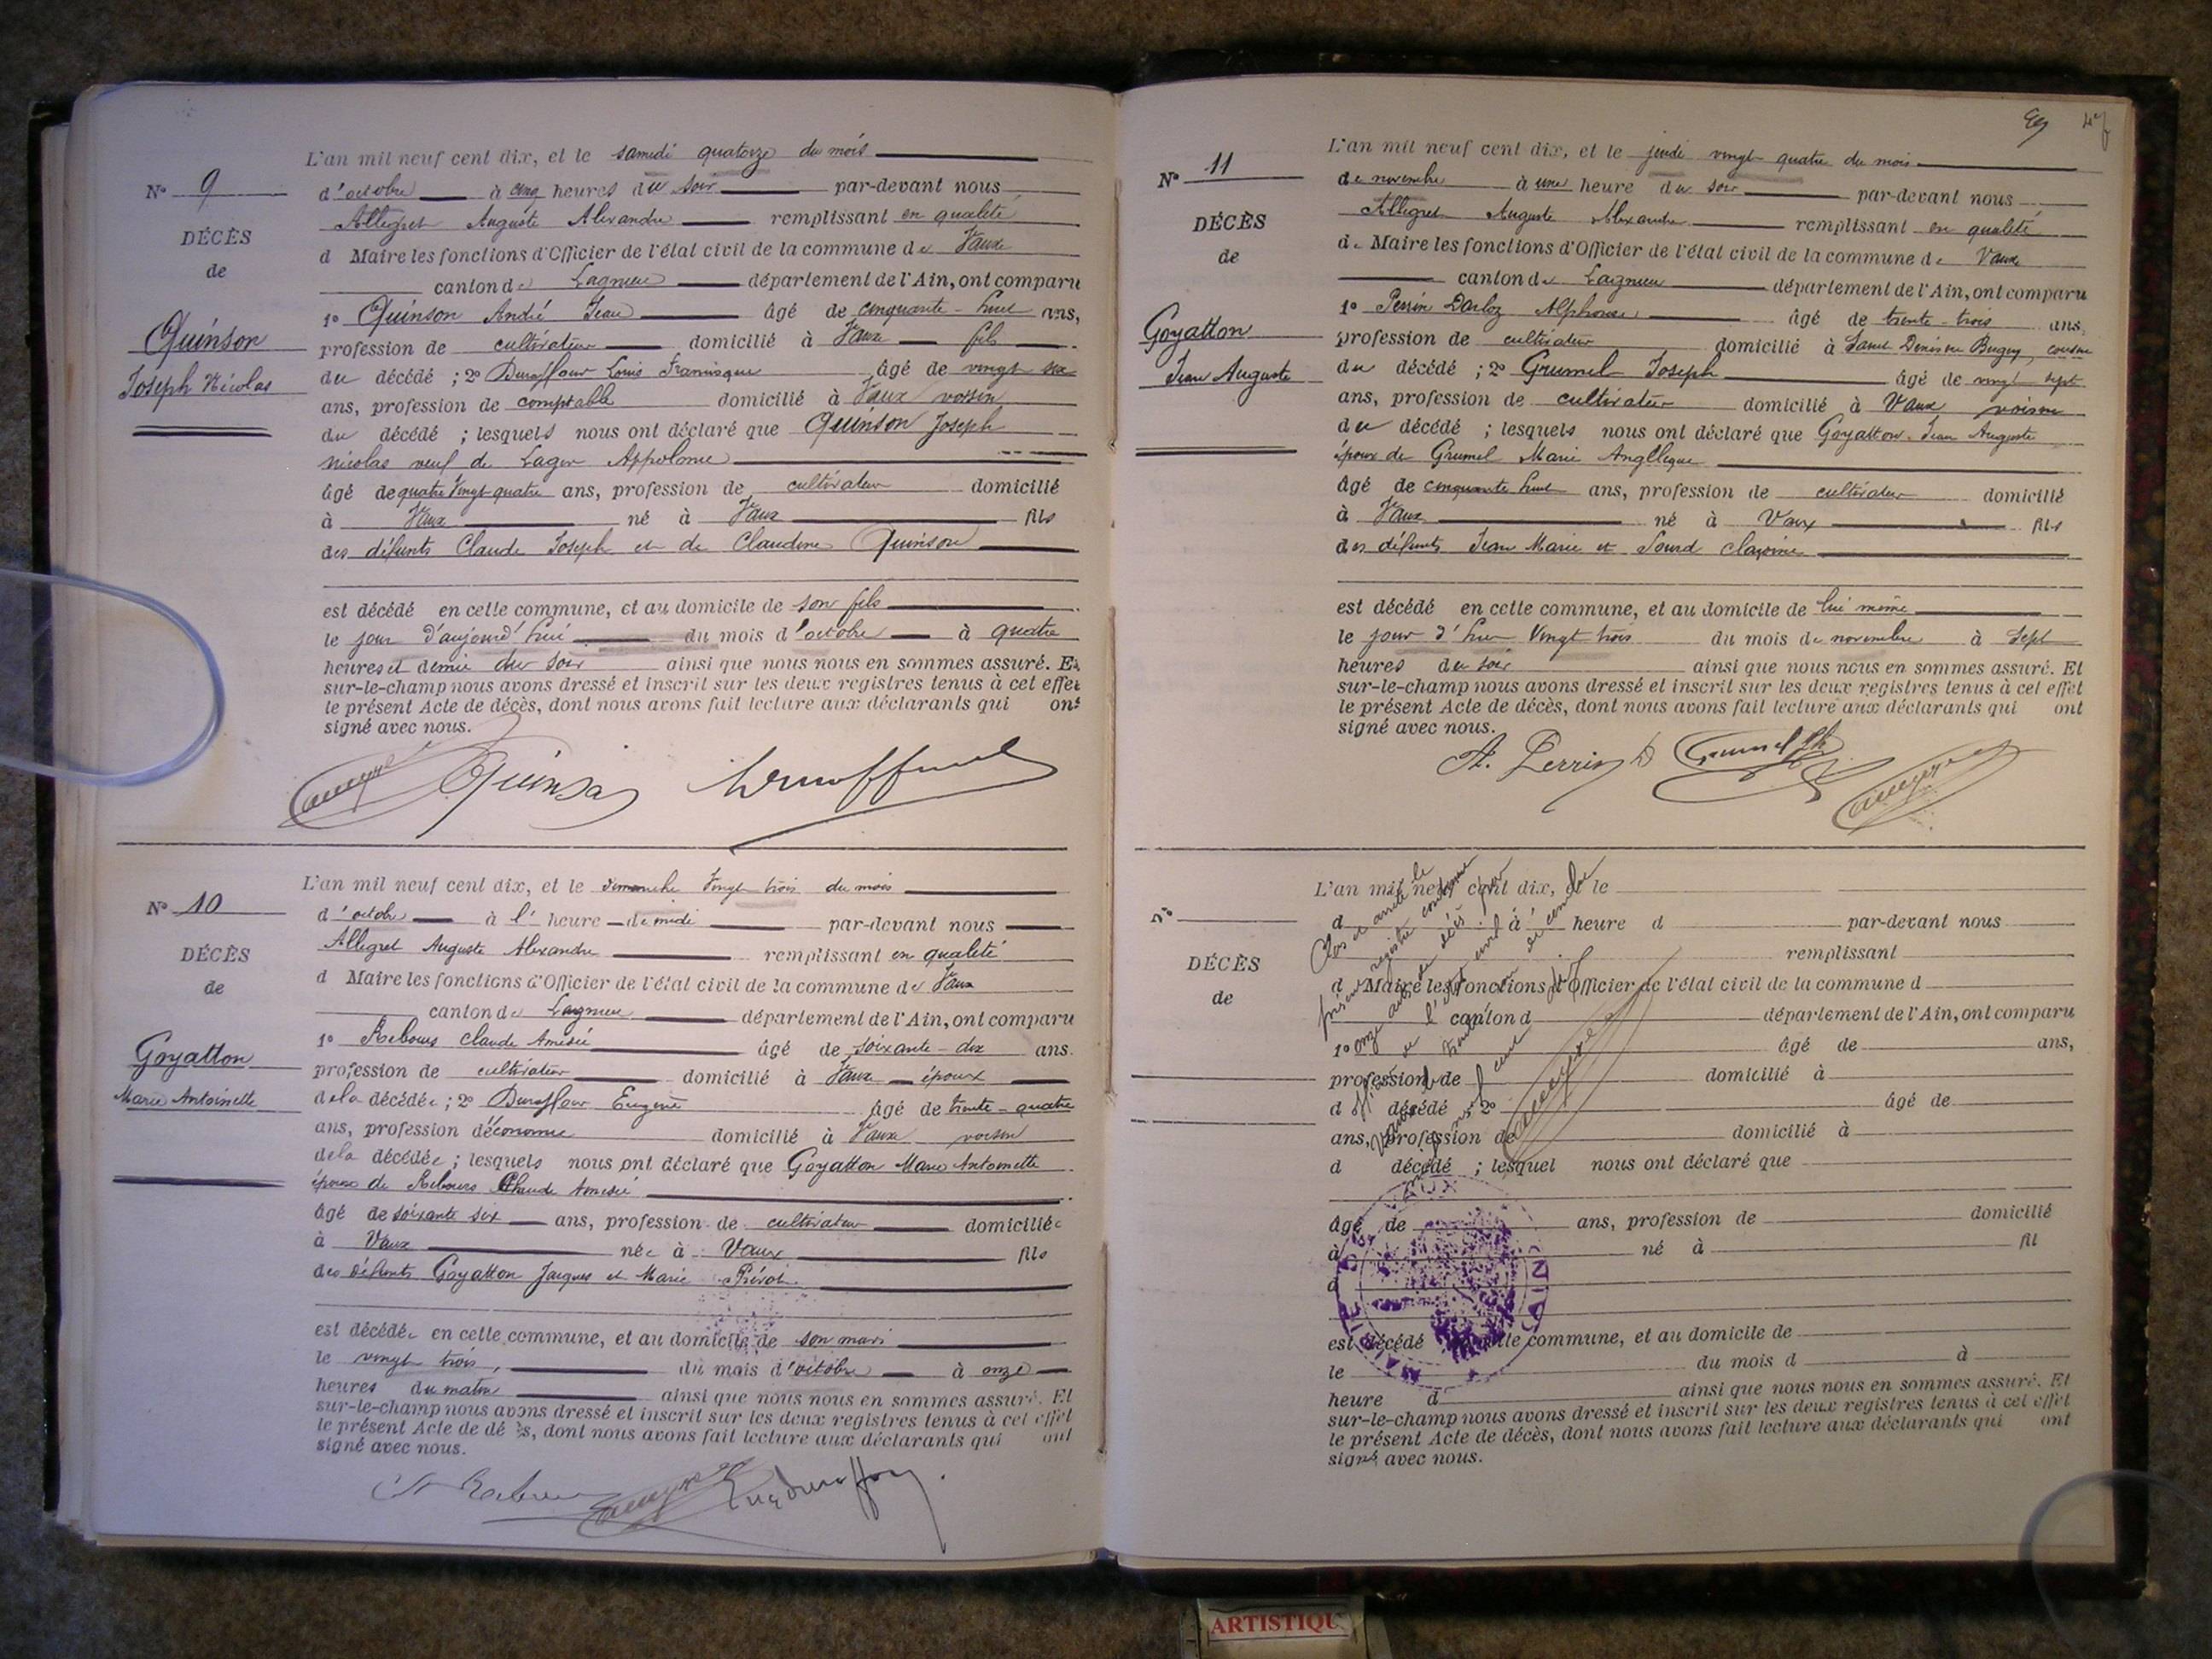 L'an mil neuf cent dix, et le samedi quatorze du mois
N° 9
d'octobre à cinq heures du soir par-devant nous
Allegret Auguste Alexandre remplissant en qualité
DÉCÈS
d Maire les fonctions d'Officier de l'état civil de la commune de Vaux
de
canton de Lagnieu département de l'Ain, ont comparu
1° Quinson André Jean âgé de cinquante-huit ans,
Quinson
profession de cultivateur domicilié à Vaux fils
Joseph Nicolas
du décédé ; 2° Duraffour Louis Francisque âgé de vingt six
ans, profession de comptable domicilié à Vaux voisin
du décédé ; lesquels nous ont déclaré que Quinson Joseph
nicolas veuf de Lager Appolonie
âgé de quatre vingt quatre ans, profession de cultivateur domicilié
à Vaux né à Vaux fils
des défunts Claude Joseph et de Claudine Quinson
est décédé en cette commune, et au domicile de son fils
le jour d'aujourd'hui du mois d'octobre à quatre
heures et demie du soir ainsi que nous nous en sommes assuré. Et
sur-le-champ nous avons dressé et inscrit sur les deux registres tenus à cet effet
le présent Acte de décès, dont nous avons fait lecture aux déclarants qui ont
signé avec nous.
Quinson
L'an mil neuf cent dix, et le dimanche vingt trois du mois
N° 10
d'octobre à l' heure de midi par-devant nous
Allegret Auguste Alexandre remplissant en qualité
DÉCÈS
d Maire les fonctions d'Officier de l'état civil de la commune de Vaux
de
canton de Lagnieu département de l'Ain, ont comparu
1° Rebours Claude Amédée âgé de soixante-dix ans.
Goyatton
profession de cultivateur domicilié à Vaux époux
Marie Antoinette
de la décédée ; 2° Duraffour Eugène âgé de trente-quatre
ans, profession d'économe domicilié à Vaux voisin
de la décédée ; lesquels nous ont déclaré que Goyatton Marie Antoinette
épouse de Rebours Claude Amédée
âgé de soixante six ans, profession de cultivateur domiciliée
à Vaux née à Vaux fils
des défunts Goyatton Jacques et Marie
est décédée en cette commune, et au domicile de son mari
le vingt trois, du mois d'octobre à onze
heures du matin ainsi que nous nous en sommes assuré. Et
sur-le-champ nous avons dressé et inscrit sur les deux registres tenus à cet effet
le présent Acte de décès, dont nous avons fait lecture aux déclarants qui ont
signé avec nous.
47
L'an mil neuf cent dix, et le jeudi vingt quatre du mois
N° 11
de novembre à une heure du soir par-devant nous
Allegret Auguste Alexandre remplissant en qualité
DÉCÈS
de Maire les fonctions d'Officier de l'état civil de la commune de Vaux
de
canton de Lagnieu département de l'Ain, ont comparu
1° Perrin Darloz Alphonse âgé de trente-trois ans.
Goyatton
profession de cultivateur domicilié à Saint Denis en Bugey, cousin
Jean Auguste
du décédé ; 2° Grumel Joseph âgé de vingt sept
ans, profession de cultivateur domicilié à Vaux voisin
du décédé ; lesquels nous ont déclaré que Goyatton Jean Auguste
époux de Grumel Marie Angélique
âgé de cinquante huit ans, profession de cultivateur domicilié
à Vaux né à Vaux fils
des défunts Jean Marie et Sourd
est décédé en cette commune, et au domicile de lui même
le jour d'hier vingt trois du mois de novembre à sept
heures du soir ainsi que nous nous en sommes assuré. Et
sur-le-champ nous avons dressé et inscrit sur les deux registres tenus à cet effet
le présent Acte de décès, dont nous avons fait lecture aux déclarants qui ont
signé avec nous.
A. Perrin D Grumel Jh
L'an mil neuf cent dix, et le
N°
d à heure d par-devant nous
remplissant
DÉCÈS
d Maire les fonctions d'Officier de l'état civil de la commune d
de
canton d département de l'Ain, ont comparu
1° âgé de ans,
profession de domicilié à
d décédé ; 2° âgé de
ans, profession de domicilié à
d décédé ; lesquel nous ont déclaré que
âgé de ans, profession de domicilié
à né à fil
d
est décédé en cette commune, et au domicile de
le du mois d à
heure d ainsi que nous nous en sommes assuré. Et
sur-le-champ nous avons dressé et inscrit sur les deux registres tenus à cet effet
le présent Acte de décès, dont nous avons fait lecture aux déclarants qui ont
signé avec nous.
Clos et arrêté le
présent registre contenant
onze actes de décès par
ARTISTIQU